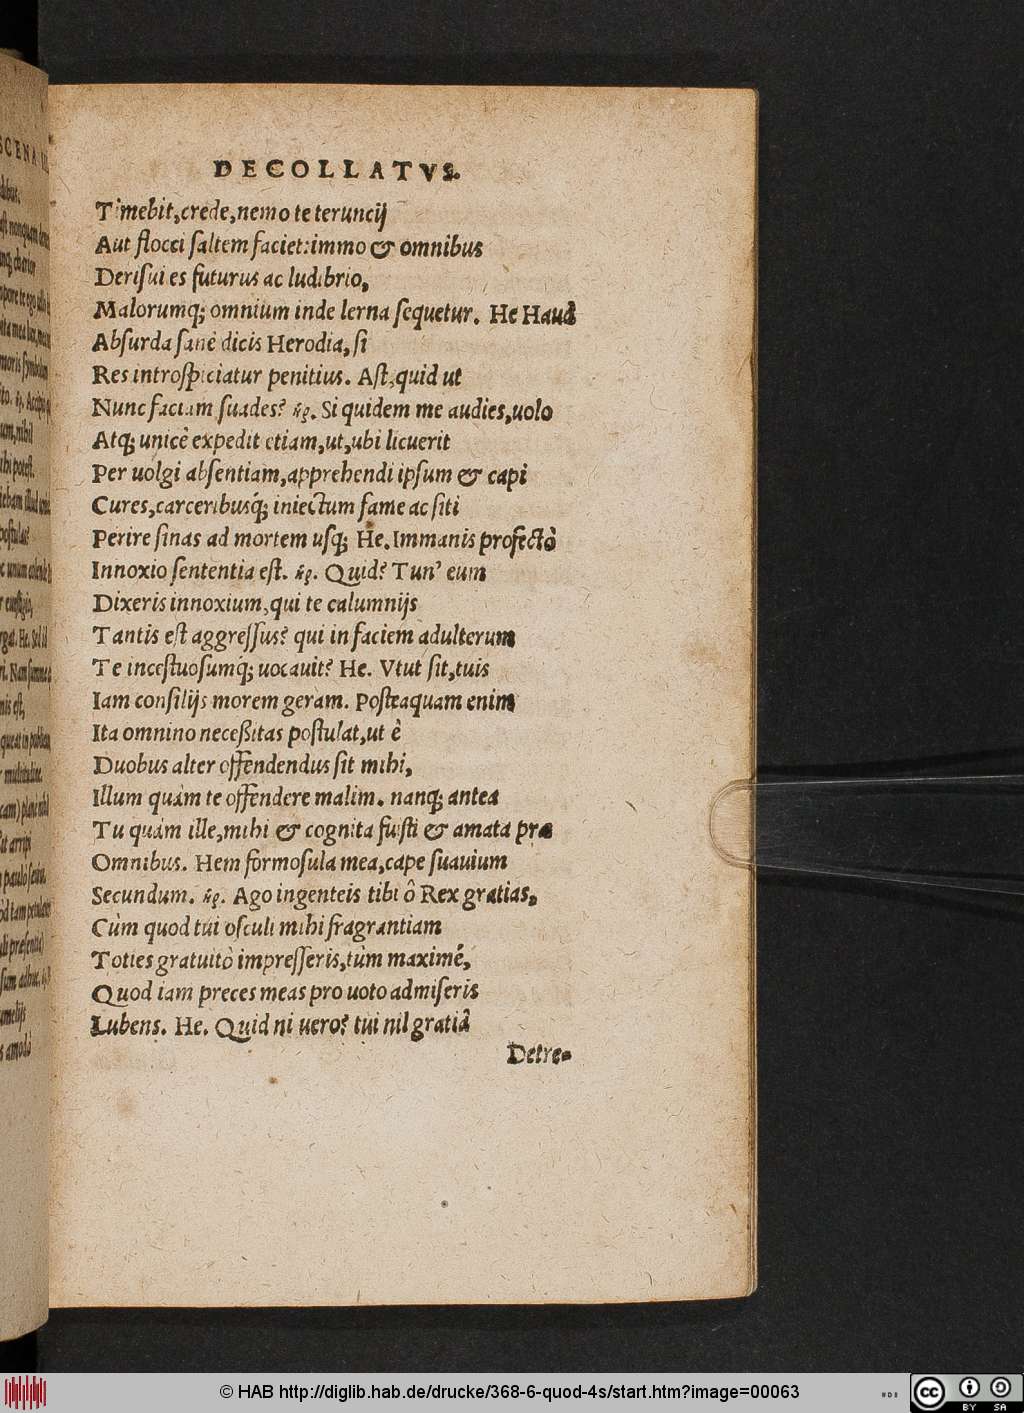 DECOLLATVS.
Timebit,crede,nemo te teruncij
Aut flocci ſaltem faciet:immo & omnibus
Deriſui es futurus ac ludibrio,
Malorumq; omnium inde lerna ſequetur. He Haud
Abſurda ſanè dicis Herodia,ſi
Res introſpiciatur penitius. Aſt,quid ut
Nunc faciam ſuades? ἡρ. Si quidem me audies,uolo
Atq; unicè expedit etiam,ut,ubi licuerit
Per uolgi abſentiam,apprehendi ipſum & capi
Cures,carceribusq́; iniectum fame ac ſiti
Perire ſinas ad mortem uſq; He.Immanis profectò
Innoxio ſententia eſt. ἡρ. Quid? Tun' eum
Dixeris innoxium,qui te calumnijs
Tantis eſt aggreſſus? qui in faciem adulterum
Te inceſtuoſumq́; uocauit? He. Vtut ſit,tuis
Iam conſilijs morem geram. Poſteaquam enim
Ita omnino neceßitas poſtulat,ut è
Duobus alter offendendus ſit mihi,
Illum quàm te offendere malim. nanq; antea
Tu quàm ille,mihi & cognita fuiſti & amata præ
Omnibus. Hem formoſula mea,cape ſuauium
Secundum. ἡρ. Ago ingenteis tibi ô Rex gratias,
Cùm quod tui oſculi mihi fragrantiam
Toties gratuitò impreſſeris,tùm maximè,
Quod iam preces meas pro uoto admiſeris
Lubens. He. Quid ni uero? tui nil gratiâ
Detre-
© HAB http://diglib.hab.de/drucke/368-6-quod-4s/start.htm?image=00063
BY SA